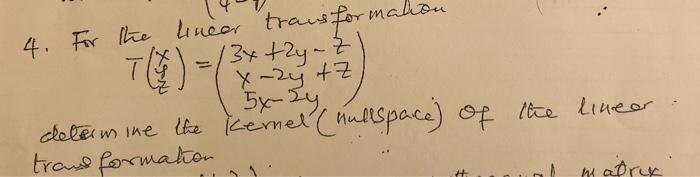 4. For the linear transformation
T(x y z) = (3x + 2y - z
x - 2y + z
5x - 2y)
determine the Kernel (nullspace) of the linear
transformation
matrix